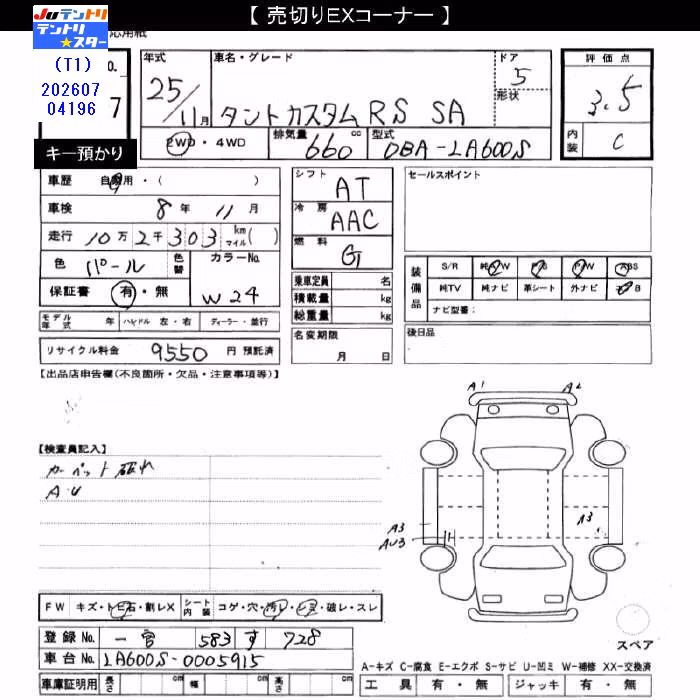 【 売切りEXコーナー 】
JUテントリ
テントリ★スター
(T1)
202607
04196
キー預かり
応用紙
o.
7
年式
車名・グレード
ドア
5
形状
25/11月
タントカスタムRS SA
2WD・4WD
排気量
660 cc
型式
DBA-LA600S
評価点
3.5
内装
C
車歴 自家用・( )
車検 8年 11月
走行 10万2千303 km マイル( )
色 パール 色替
カラーNo. W24
保証書 有・無
モデル年式 年 ハンドル 左・右 ディーラー・並行
リサイクル料金 9550 円 預託済
シフト AT
冷房 AAC
燃料 G
乗車定員 名
積載量 kg
総重量 kg
名変期限
月 日
セールスポイント
装備品
S/R 純AW P/S P/W ABS
純TV 純ナビ 革シート 外ナビ エアB
ナビ型番:
後日品
【出品店申告欄(不良箇所・欠品・注意事項等)】
【検査員記入】
カーペット破れ
A・U
A1
A2
A3
AU3
A3
スペア
FW キズ・トビ石・割レX シート内装 コゲ・穴・汚レ・シミ・破レ・スレ
登録No. 一宮 583 す 728
車台No. LA600S-0005915
車庫証明用 長さ cm 幅 cm 高さ cm
A-キズ C-腐食 E-エクボ S-サビ U-凹ミ W-補修 XX-交換済
工具 有・無 ジャッキ 有・無